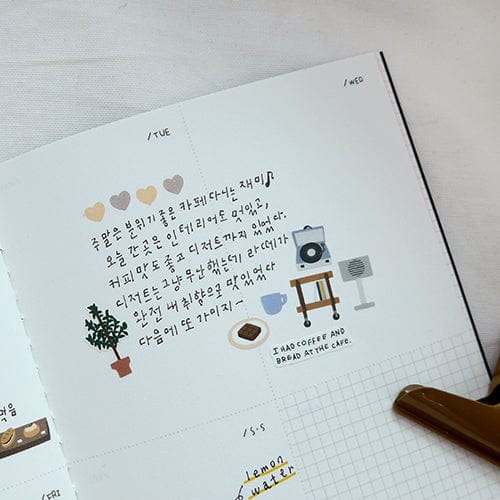 /TUE
/WED
주말은 분위기 좋은 카페 다니는 재미♪
오늘 간 곳은 인테리어도 멋있고,
커피 맛도 좋고 디저트까지 있었다.
디저트는 그냥 무난했는데 라떼가
완전 내 취향으로 맛있었다
다음에 또 가야지~
I HAD COFFEE AND
BREAD AT THE CAFE.
먹음
/S·S
lemon
water
/FRI